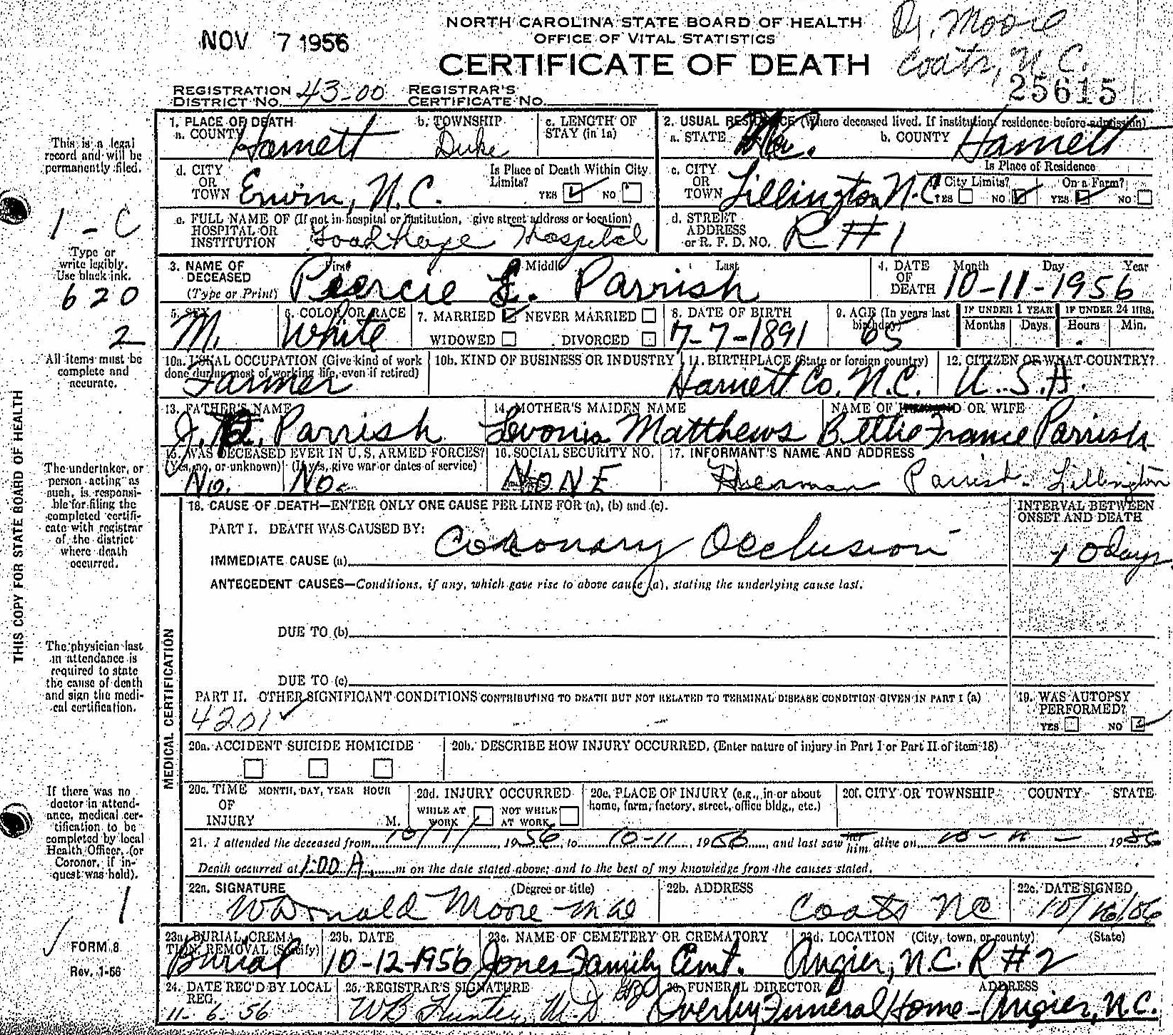 NORTH CAROLINA STATE BOARD OF HEALTH
OFFICE OF VITAL STATISTICS
CERTIFICATE OF DEATH
NOV 7 1956
Dr. Moore
Coats, N.C.
25615
REGISTRATION DISTRICT No. 43-00 REGISTRAR'S CERTIFICATE No.
This is a legal record and will be permanently filed.
1 - C
Type or write legibly. Use black ink.
620
2
All items must be complete and accurate.
The undertaker, or person acting as such, is responsible for filing the completed certificate with registrar of the district where death occurred.
The physician last in attendance is required to state the cause of death and sign the medical certification.
If there was no doctor in attendance, medical certification to be completed by local Health Officer, (or Coroner, if inquest was held).
1
FORM 8
Rev. 1-56
THIS COPY FOR STATE BOARD OF HEALTH
1. PLACE OF DEATH
a. COUNTY Harnett
b. TOWNSHIP Duke
c. LENGTH OF STAY (in 1a)
2. USUAL RESIDENCE (Where deceased lived. If institution, residence before admission)
a. STATE
b. COUNTY Harnett
d. CITY OR TOWN Erwin, N.C.
Is Place of Death Within City Limits? YES ✓ NO
c. CITY OR TOWN Lillington N.C.
Is Place of Residence
City Limits? YES NO ✓
On a Farm? YES ✓ NO
e. FULL NAME OF (If not in hospital or institution, give street address or location) HOSPITAL OR INSTITUTION Good Hope Hospital
d. STREET ADDRESS or R. F. D. NO. R #1
3. NAME OF DECEASED (Type or Print)
First Middle Last
Percie L. Parrish
4. DATE OF DEATH Month Day Year
10-11-1956
5. SEX M.
6. COLOR OR RACE White
7. MARRIED ✓ NEVER MARRIED
WIDOWED DIVORCED
8. DATE OF BIRTH 7-7-1891
9. AGE (In years last birthday) 65
IF UNDER 1 YEAR Months Days
IF UNDER 24 HRS. Hours Min.
10a. USUAL OCCUPATION (Give kind of work done during most of working life, even if retired) Farmer
10b. KIND OF BUSINESS OR INDUSTRY
11. BIRTHPLACE (State or foreign country) Harnett Co. N.C.
12. CITIZEN OF WHAT COUNTRY? U.S.A.
13. FATHER'S NAME J. Parrish
14. MOTHER'S MAIDEN NAME Levonia Matthews
NAME OF HUSBAND OR WIFE Bettie France Parrish
15. WAS DECEASED EVER IN U.S. ARMED FORCES? (Yes, no, or unknown) (If yes, give war or dates of service)
No. No.
16. SOCIAL SECURITY NO. NONE
17. INFORMANT'S NAME AND ADDRESS Herman Parrish - Lillington
MEDICAL CERTIFICATION
18. CAUSE OF DEATH—ENTER ONLY ONE CAUSE PER LINE FOR (a), (b) and (c).
INTERVAL BETWEEN ONSET AND DEATH
PART I. DEATH WAS CAUSED BY:
IMMEDIATE CAUSE (a) Coronary Occlusion
10 days
ANTECEDENT CAUSES—Conditions, if any, which gave rise to above cause (a), stating the underlying cause last.
DUE TO (b)
DUE TO (c)
PART II. OTHER SIGNIFICANT CONDITIONS CONTRIBUTING TO DEATH BUT NOT RELATED TO TERMINAL DISEASE CONDITION GIVEN IN PART I (a)
4201 ✓
19. WAS AUTOPSY PERFORMED?
YES NO
20a. ACCIDENT SUICIDE HOMICIDE
20b. DESCRIBE HOW INJURY OCCURRED. (Enter nature of injury in Part I or Part II of item 18)
20c. TIME OF INJURY MONTH, DAY, YEAR HOUR M.
20d. INJURY OCCURRED
WHILE AT WORK NOT WHILE AT WORK
20e. PLACE OF INJURY (e.g., in or about home, farm, factory, street, office bldg., etc.)
20f. CITY OR TOWNSHIP COUNTY STATE
21. I attended the deceased from 10/1/, 1956, to 10-11, 1956, and last saw him alive on 10- , 1956
Death occurred at 1:00 A. m on the date stated above; and to the best of my knowledge from the causes stated.
22a. SIGNATURE (Degree or title)
W Donald Moore MD
22b. ADDRESS Coats NC
22c. DATE SIGNED 10/16/56
23a. BURIAL, CREMATION, REMOVAL (Specify) Burial
23b. DATE 10-12-1956
23c. NAME OF CEMETERY OR CREMATORY Jones Family Cemt.
23d. LOCATION (City, town, or county) (State)
Angier, N.C. R #2
24. DATE REC'D BY LOCAL REG. 11-6-56
25. REGISTRAR'S SIGNATURE W B Hunter, M.D
26. FUNERAL DIRECTOR ADDRESS
Overby Funeral Home - Angier, N.C.